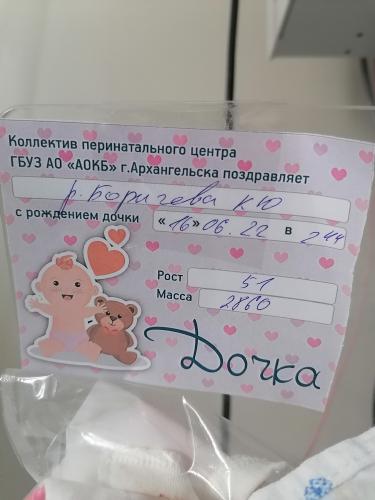 Коллектив перинатального центра
ГБУЗ АО «АОКБ» г.Архангельска поздравляет
р. Боричева К Ю
с рождением дочки «16» 06. 22 в 2 44
Рост 51
Масса 2860
Дочка